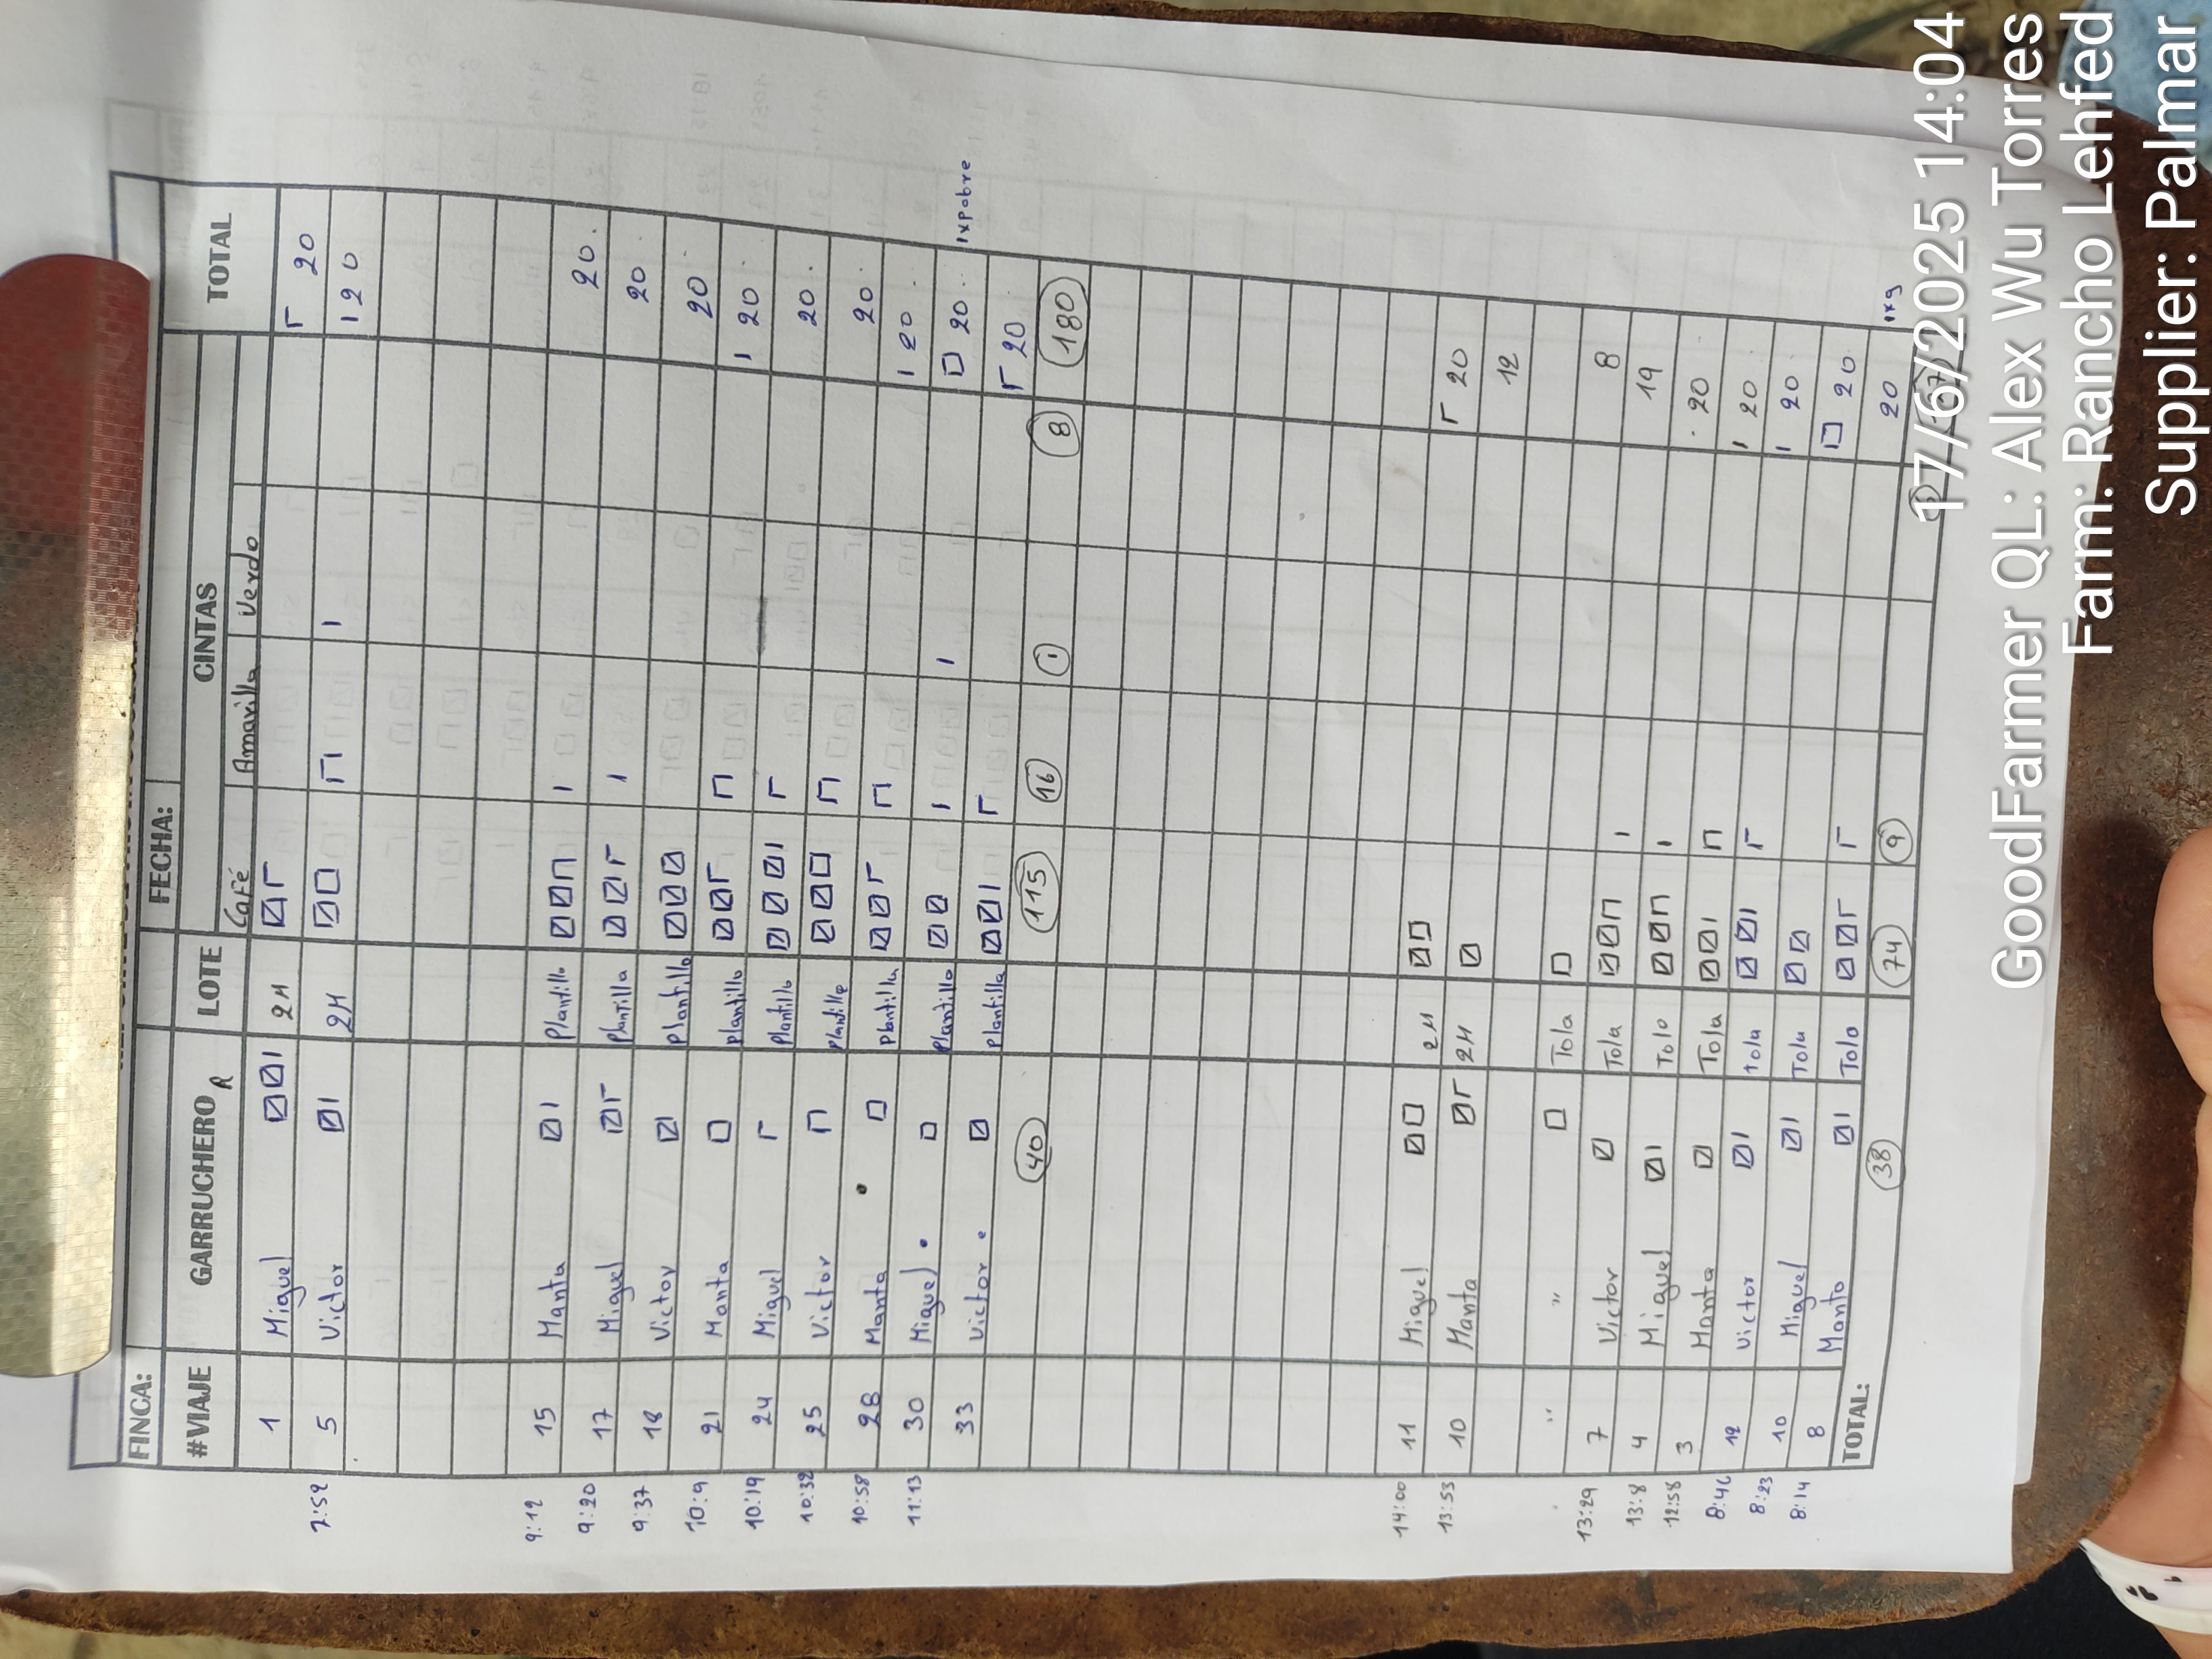 FINCA: FECHA:
#VIAJE GARRUCHERO R LOTE CINTAS TOTAL
Café Amarilla Verdo
1 Miguel 2H 20
7:52 5 Victor 2H 20
9:12 15 Manta Plantillo 20
9:20 17 Miguel Plantilla 20
9:37 18 Victor Plantillo 20
10:9 21 Manta plantillo 20
10:19 24 Miguel Plantillo 20
10:32 25 Victor Plantilla 20
10:58 28 Manta Plantilla 20
11:13 30 Miguel Plantillo 20 1xpobre
33 Victor Plantilla 20
40 115 16 1 8 180
14:00 11 Miguel 2H 20
13:53 10 Manta 2H 12
" " Tola 8
13:29 7 Victor Tola 19
13:8 4 Miguel Tolo 20
12:58 3 Manta Tola 20
8:46 12 Victor tola 20
8:23 10 Miguel Tola 20
8:14 8 Manto Tolo 20 1xg
TOTAL: 38 74 9
17/6/2025 14:04
GoodFarmer QL: Alex Wu Torres
Farm: Rancho Lehfed
Supplier: Palmar